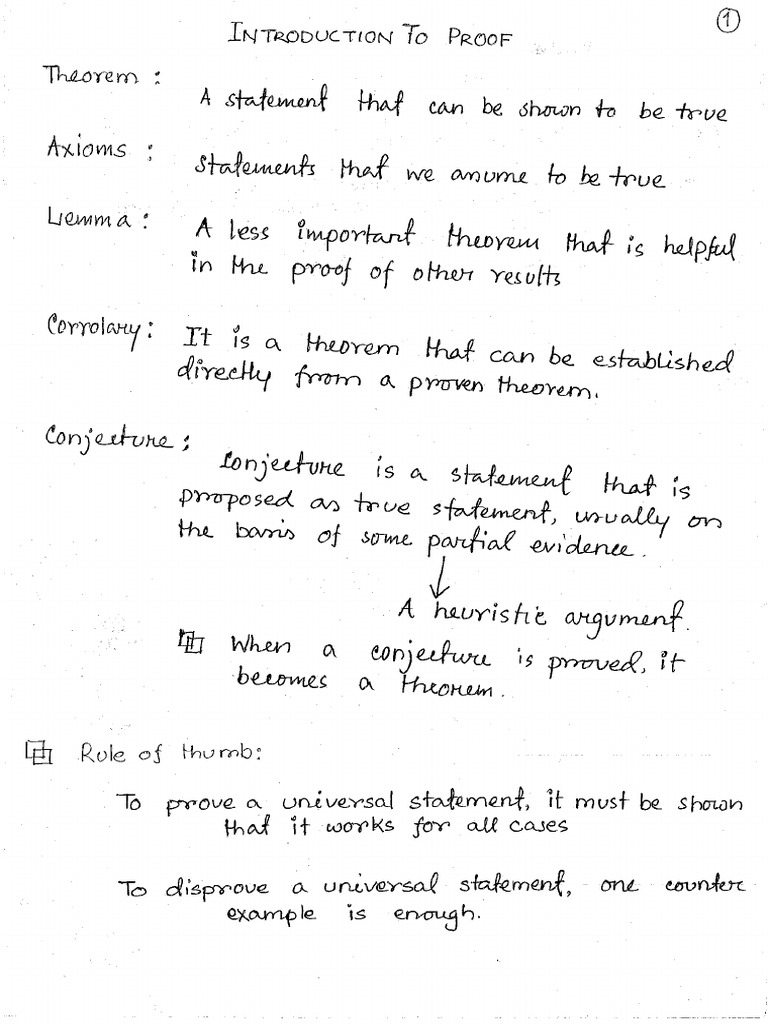 1
INTRODUCTION TO PROOF
Theorem :
A statement that can be shown to be true
Axioms :
Statements that we assume to be true
Lemma :
A less important theorem that is helpful
in the proof of other results
Corrolary :
It is a theorem that can be established
directly from a proven theorem.
Conjecture :
Conjecture is a statement that is
proposed as true statement, usually on
the basis of some partial evidence.
A heuristic argument.
When a conjecture is proved, it
becomes a theorem.
Rule of thumb:
To prove a universal statement, it must be shown
that it works for all cases
To disprove a universal statement, one counter
example is enough.